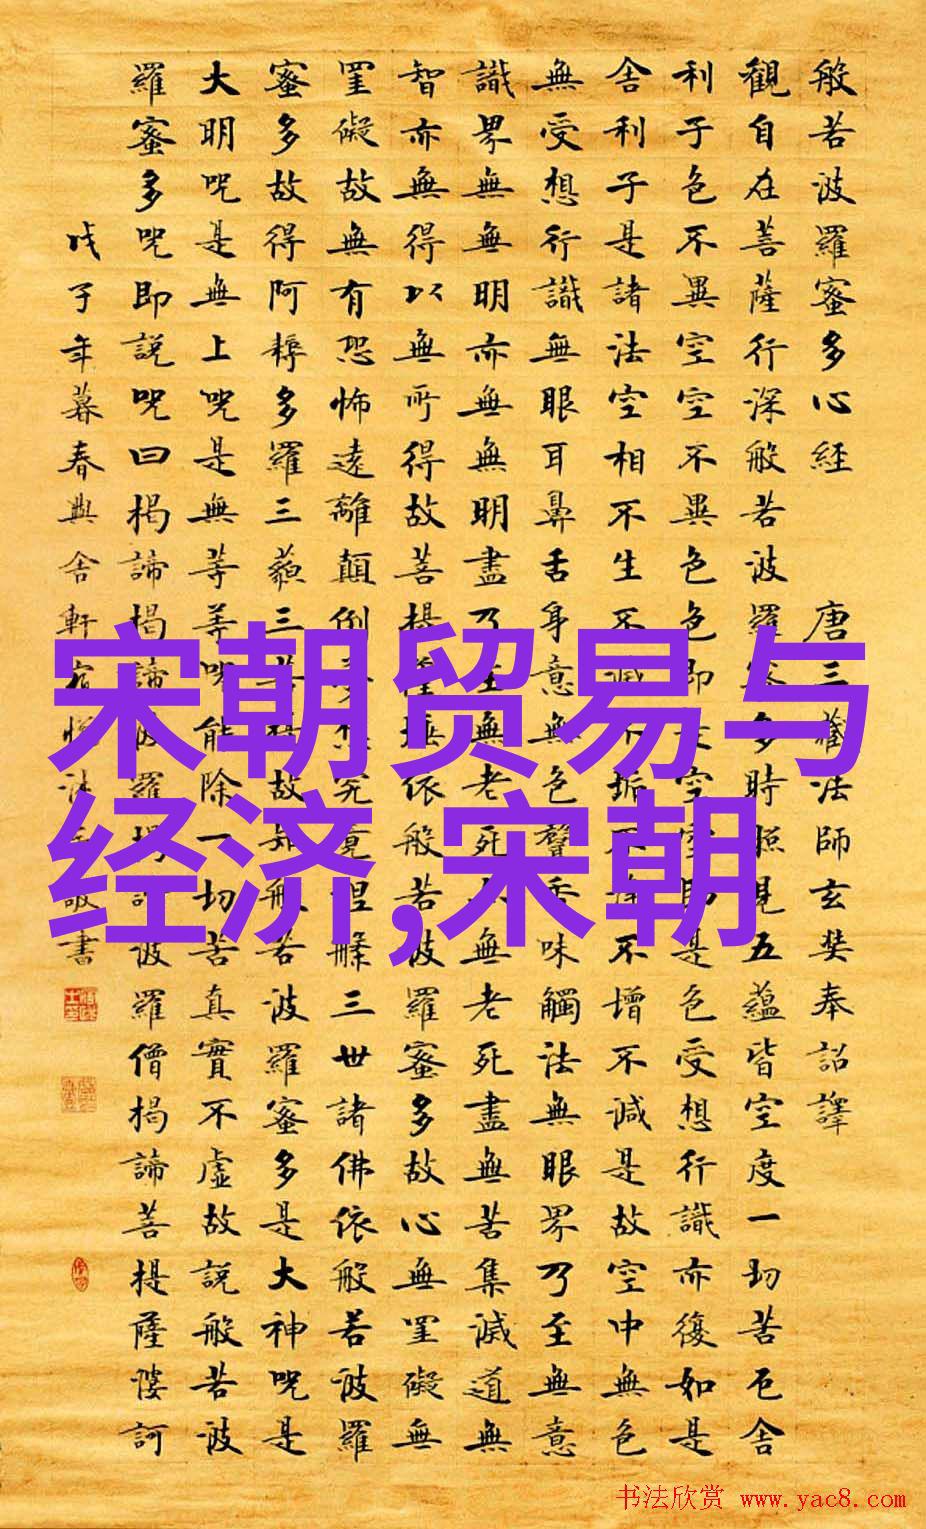 般若波羅蜜多心經 唐三藏法師玄奘奉詔譯
觀自在菩薩行深般若波羅蜜多時照見五蘊皆空度一切苦厄舍
利子色不異空空不異色色即是空空即是色受想行識亦復如是
舍利子是諸法空相不生不滅不垢不淨不增不減是故空中無色
無受想行識無眼耳鼻舌身意無色聲香味觸法無眼界乃至無意
識界無無明亦無無明盡乃至無老死亦無老死盡無苦集滅道無
智亦無得以無所得故菩提薩埵依般若波羅蜜多故心無罣礙無
罣礙故無有恐怖遠離顛倒夢想究竟涅槃三世諸佛依般若波羅
蜜多故得阿耨多羅三藐三菩提故知般若波羅蜜多是大神呪是
大明呪是無上呪是無等等呪能除一切苦真實不虛故說般若波
羅蜜多呪即說呪曰揭諦揭諦波羅揭諦波羅僧揭諦菩提薩婆訶
戊子年暮春 舍軒 敬書
宋朝贸易与
经济,宋朝
书法欣赏 www.yac8.com